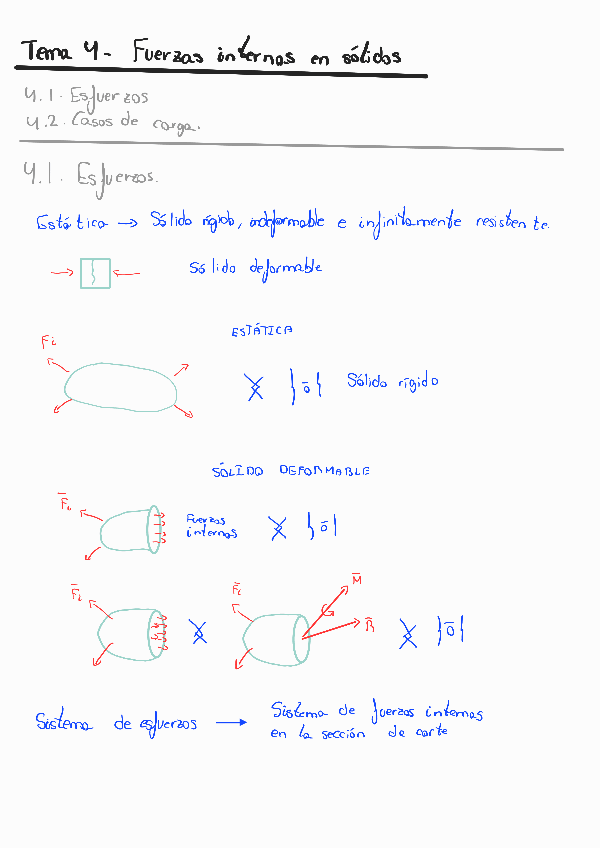 Tema 4 - Fuerzas internas en sólidos
4.1. Esfuerzos
4.2. Casos de carga.
4.1. Esfuerzos.
Estática → Sólido rígido, indeformable e infinitamente resistente.
Sólido deformable
ESTÁTICA
Fi
{0̄} Sólido rígido
SÓLIDO DEFORMABLE
F̄i
Fuerzas
internas
{0̄}
F̄i
F̄i
M̄
R̄
{0̄}
Sistema de esfuerzos → Sistema de fuerzas internas
en la sección de corte